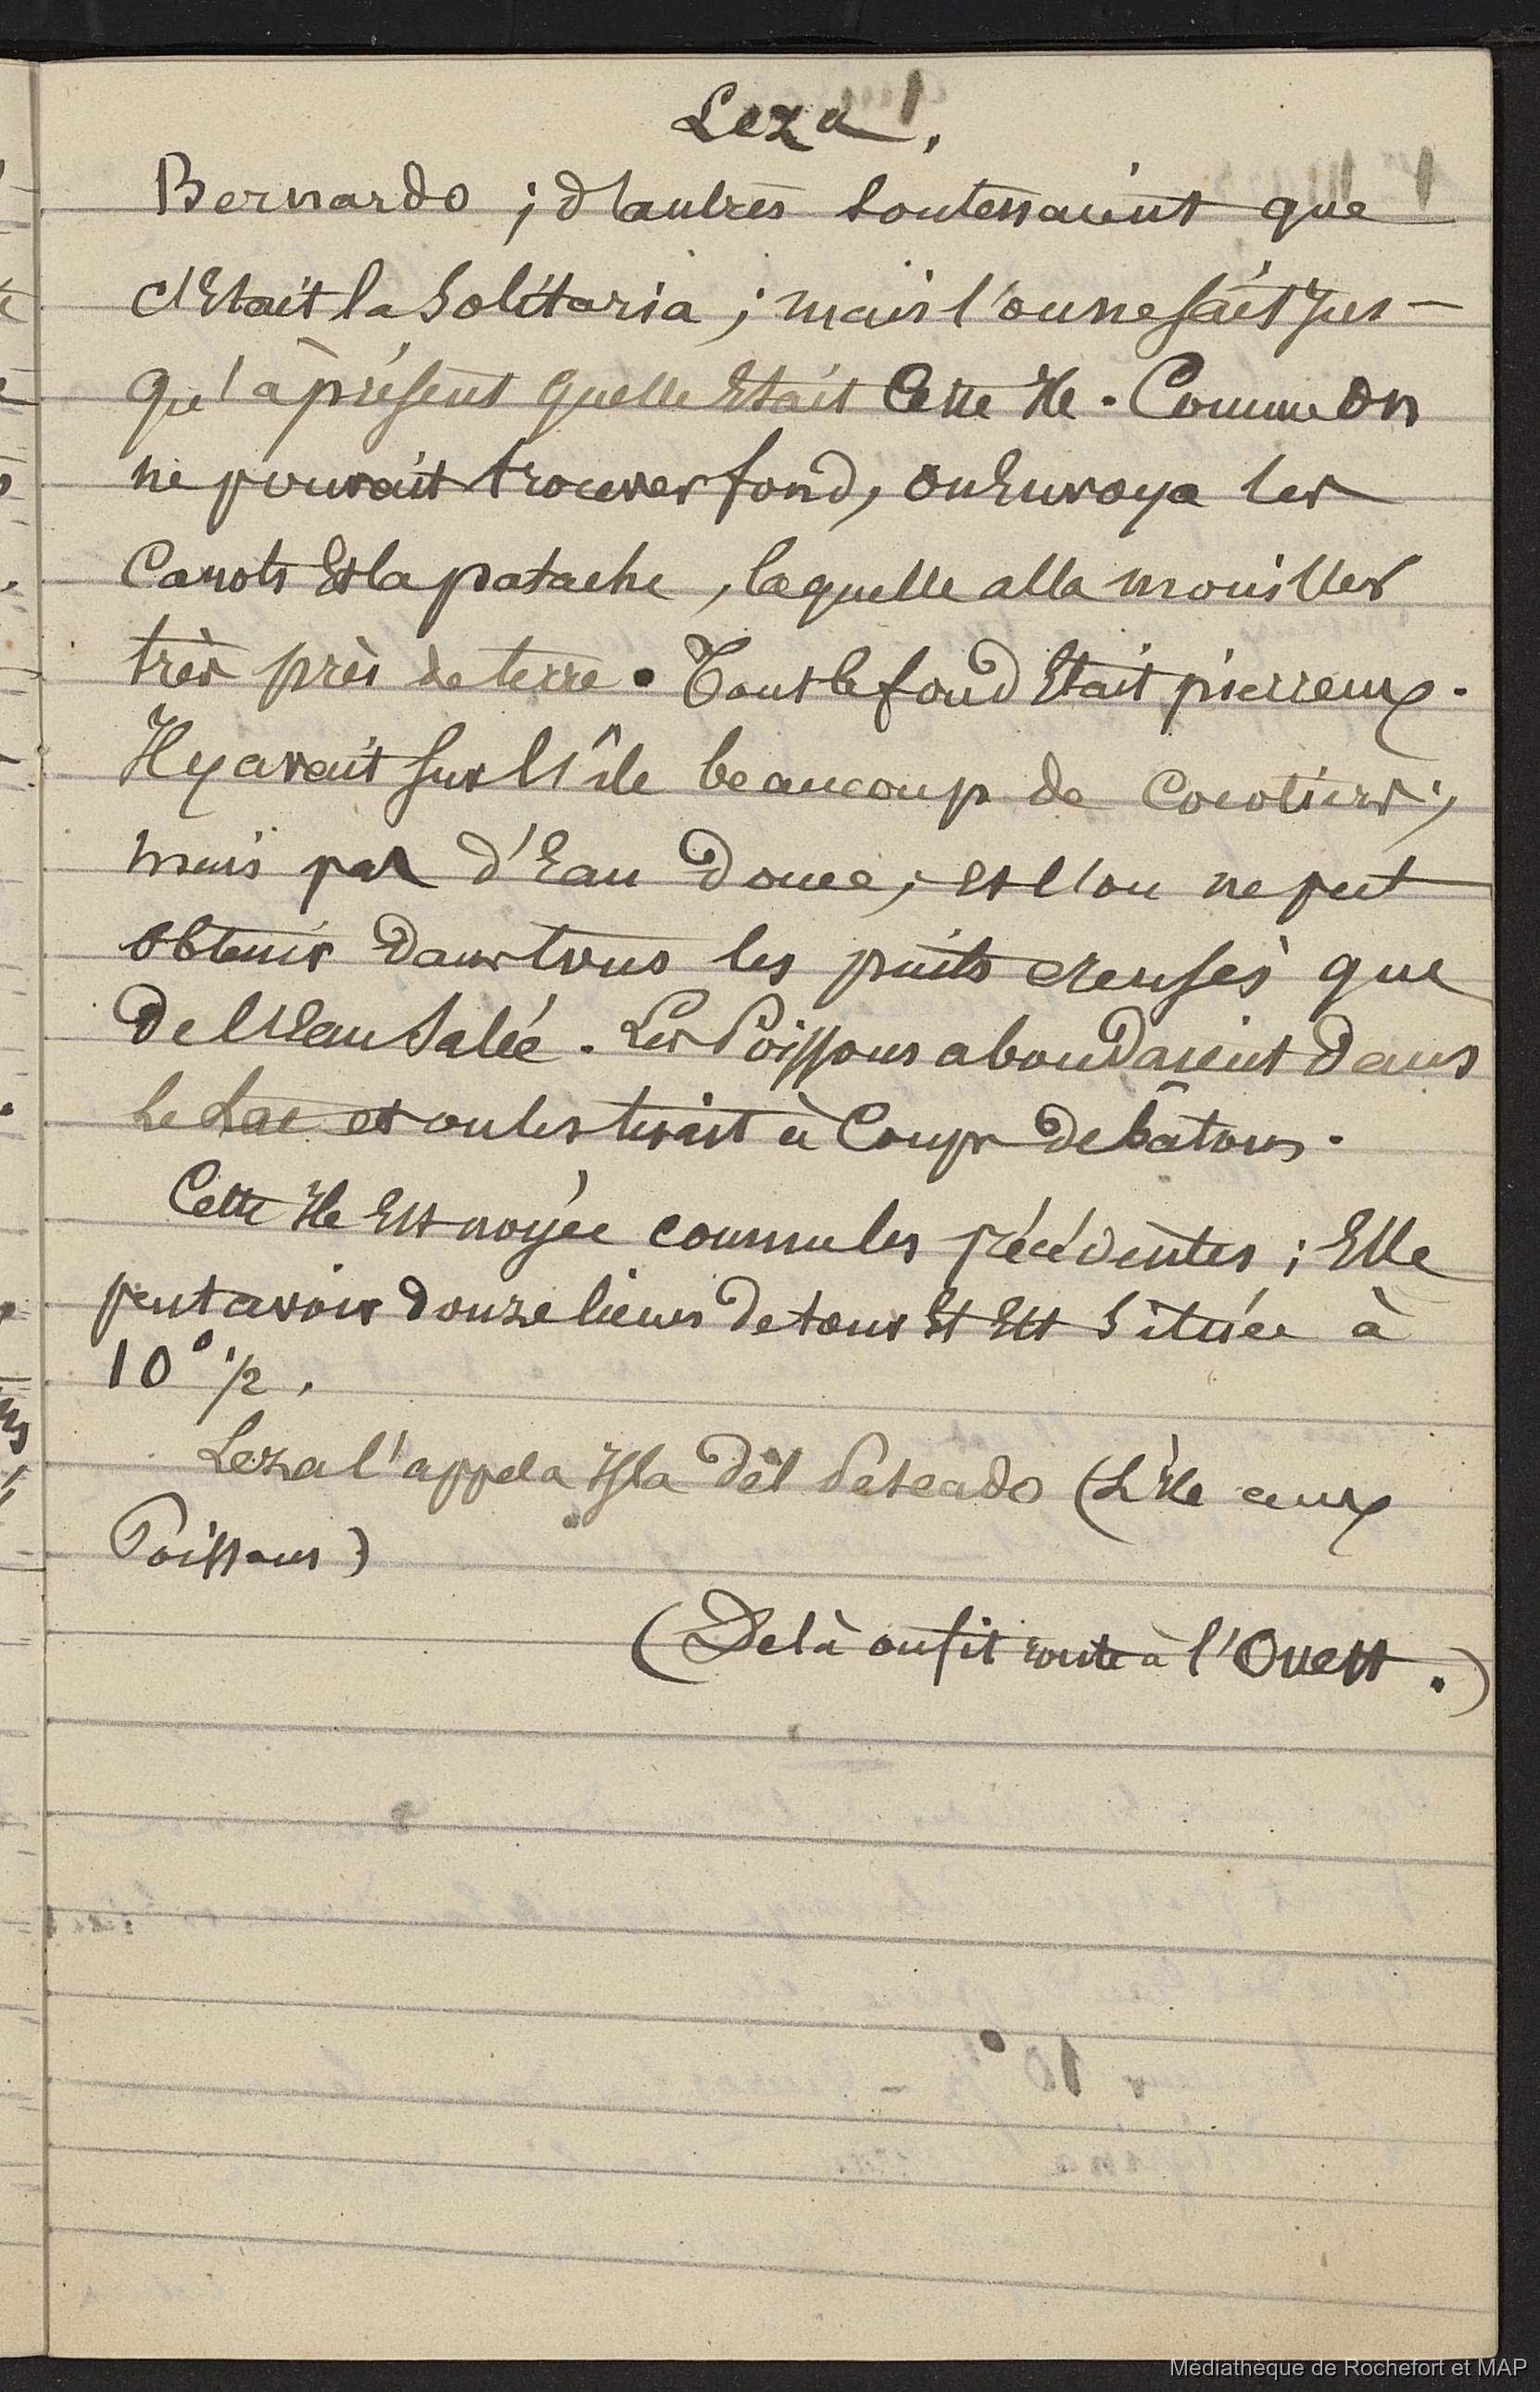 Leza.
Bernardo ; d'autres soutenaient que
c'Etait la Solitaria ; mais l'on ne sait jus-
qu'à présent quelle Etait Cette Ile. Comme on
ne pouvait trouver fond, on Envoya les
Canots Et la patache, laquelle alla mouiller
très près de terre. Tout le fond Etait pierreux.
Il y avait sur l'île beaucoup de Cocotiers ;
mais pas d'Eau Douce ; et l'on ne put
obtenir dans tous les puits creusés que
de l'Eau Salée. Les Poissons abondaient dans
le Lac et on les tirait à Coups de bâtons.
Cette Ile Est noyée comme les précédentes ; Elle
peut avoir douze lieues de tour Et Est Située à
10° 1/2.
Leza l'appela Isla del Peseado (L'Ile aux
Poissons)
(De là on fit route à l'Ouest.)
Médiathèque de Rochefort et MAP